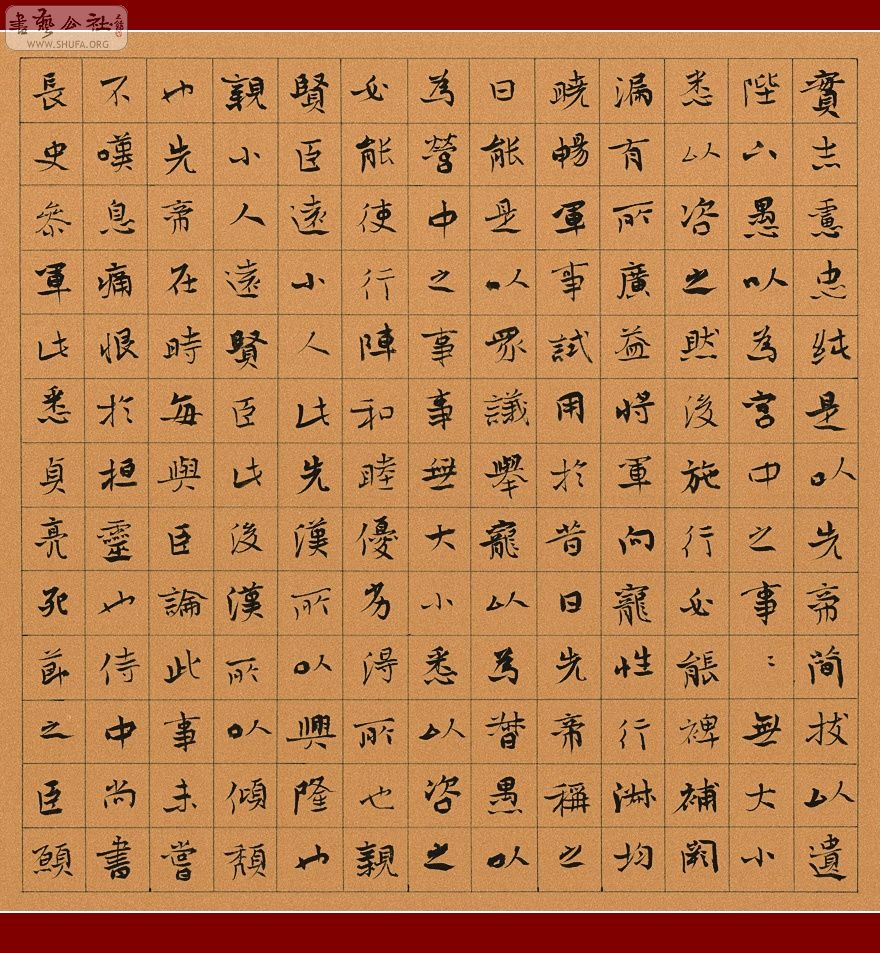 書藝公社
WWW.SHUFA.ORG
實志慮忠純是以先帝簡拔以遺
陛下愚以為宮中之事〻無大小
悉以咨之然後施行必能裨補闕
漏有所廣益將軍向寵性行淑均
曉暢軍事試用於昔日先帝稱之
曰能是以眾議舉寵以為督愚以
為營中之事事無大小悉以咨之
必能使行陣和睦優劣得所也親
賢臣遠小人此先漢所以興隆也
親小人遠賢臣此後漢所以傾頹
也先帝在時每與臣論此事未嘗
不嘆息痛恨於桓靈也侍中尚書
長史參軍此悉貞亮死節之臣願